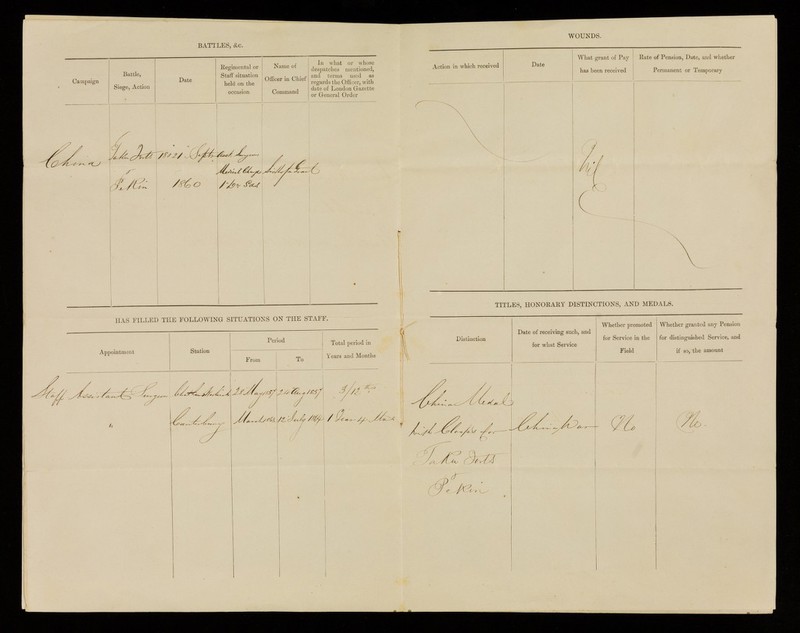 BATTLES, &c.
Campaign
Battle,
Siege, Action
Date
Regimental or
Staff situation
held on the
occasion
Name of
Officer in Chief
Command
In what or whose
despatches mentioned,
and terms used as
regards the Officer, with
date of London Gazette
or General Order
China Taku Forts Asst Surgeon
Pekin 1860
HAS FILLED THE FOLLOWING SITUATIONS ON THE STAFF.
Appointment
Station
Period
From
To
Total period in
Years and Months
Staff Assistant Surgeon 3/12
" Canterbury March 12 July 1 Year 4
WOUNDS.
Action in which received
Date
What grant of Pay
has been received
Rate of Pension, Date, and whether
Permanent or Temporary
Nil
TITLES, HONORARY DISTINCTIONS, AND MEDALS.
Distinction
Date of receiving such, and
for what Service
Whether promoted
for Service in the
Field
Whether granted any Pension
for distinguished Service, and
if so, the amount
China Medal
with Clasps for China War No No.
Taku Forts
Pekin